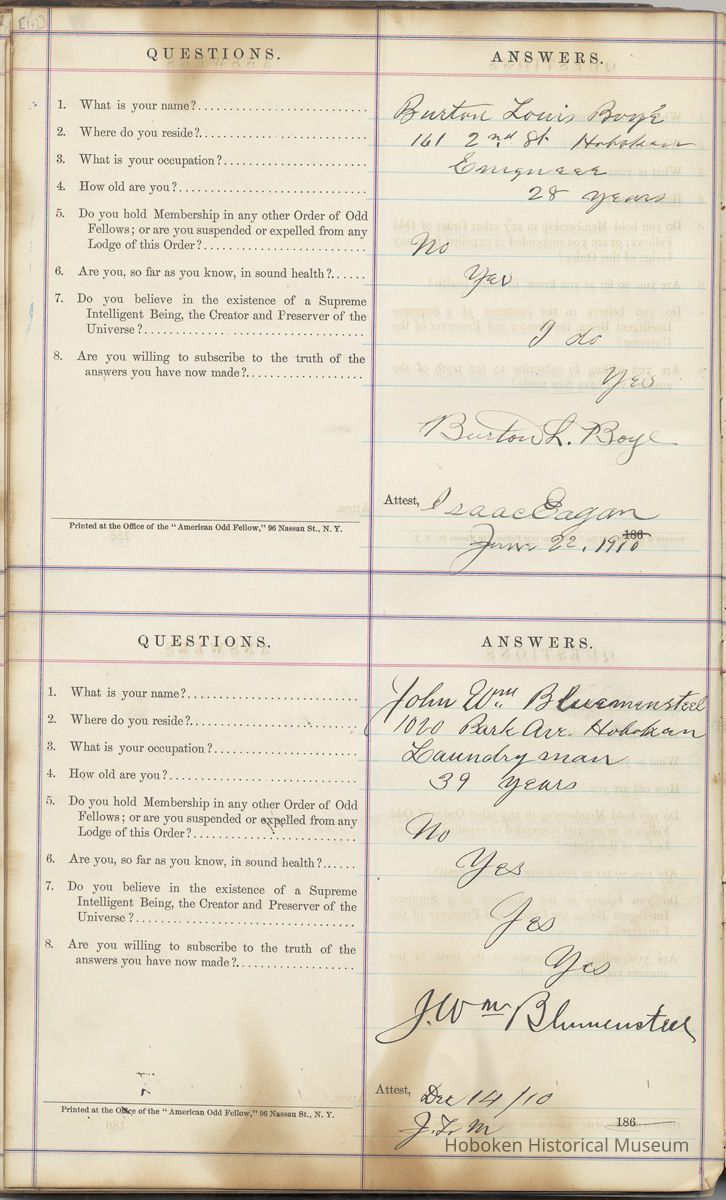 [141]
QUESTIONS. ANSWERS.
1. What is your name? Burton Louis Boyé
2. Where do you reside? 161 2nd St Hoboken
3. What is your occupation? Engineer
4. How old are you? 28 years
5. Do you hold Membership in any other Order of Odd
Fellows; or are you suspended or expelled from any
Lodge of this Order? No
6. Are you, so far as you know, in sound health? Yes
7. Do you believe in the existence of a Supreme
Intelligent Being, the Creator and Preserver of the
Universe? I do
8. Are you willing to subscribe to the truth of the
answers you have now made? Yes
Burton L. Boye
Attest, Isaac Eagan
Printed at the Office of the "American Odd Fellow," 96 Nassau St., N. Y.
186
June 22, 1910
QUESTIONS. ANSWERS.
1. What is your name? John Wm. Bluemensteel
2. Where do you reside? 1020 Park Ave. Hoboken
3. What is your occupation? Laundry man
4. How old are you? 39 years
5. Do you hold Membership in any other Order of Odd
Fellows; or are you suspended or expelled from any
Lodge of this Order? No
6. Are you, so far as you know, in sound health? Yes
7. Do you believe in the existence of a Supreme
Intelligent Being, the Creator and Preserver of the
Universe? Yes
8. Are you willing to subscribe to the truth of the
answers you have now made? Yes
J. Wm Blumensteel
Attest, Dec 14/10
Printed at the Office of the "American Odd Fellow," 96 Nassau St., N. Y.
186
J. L. M
Hoboken Historical Museum